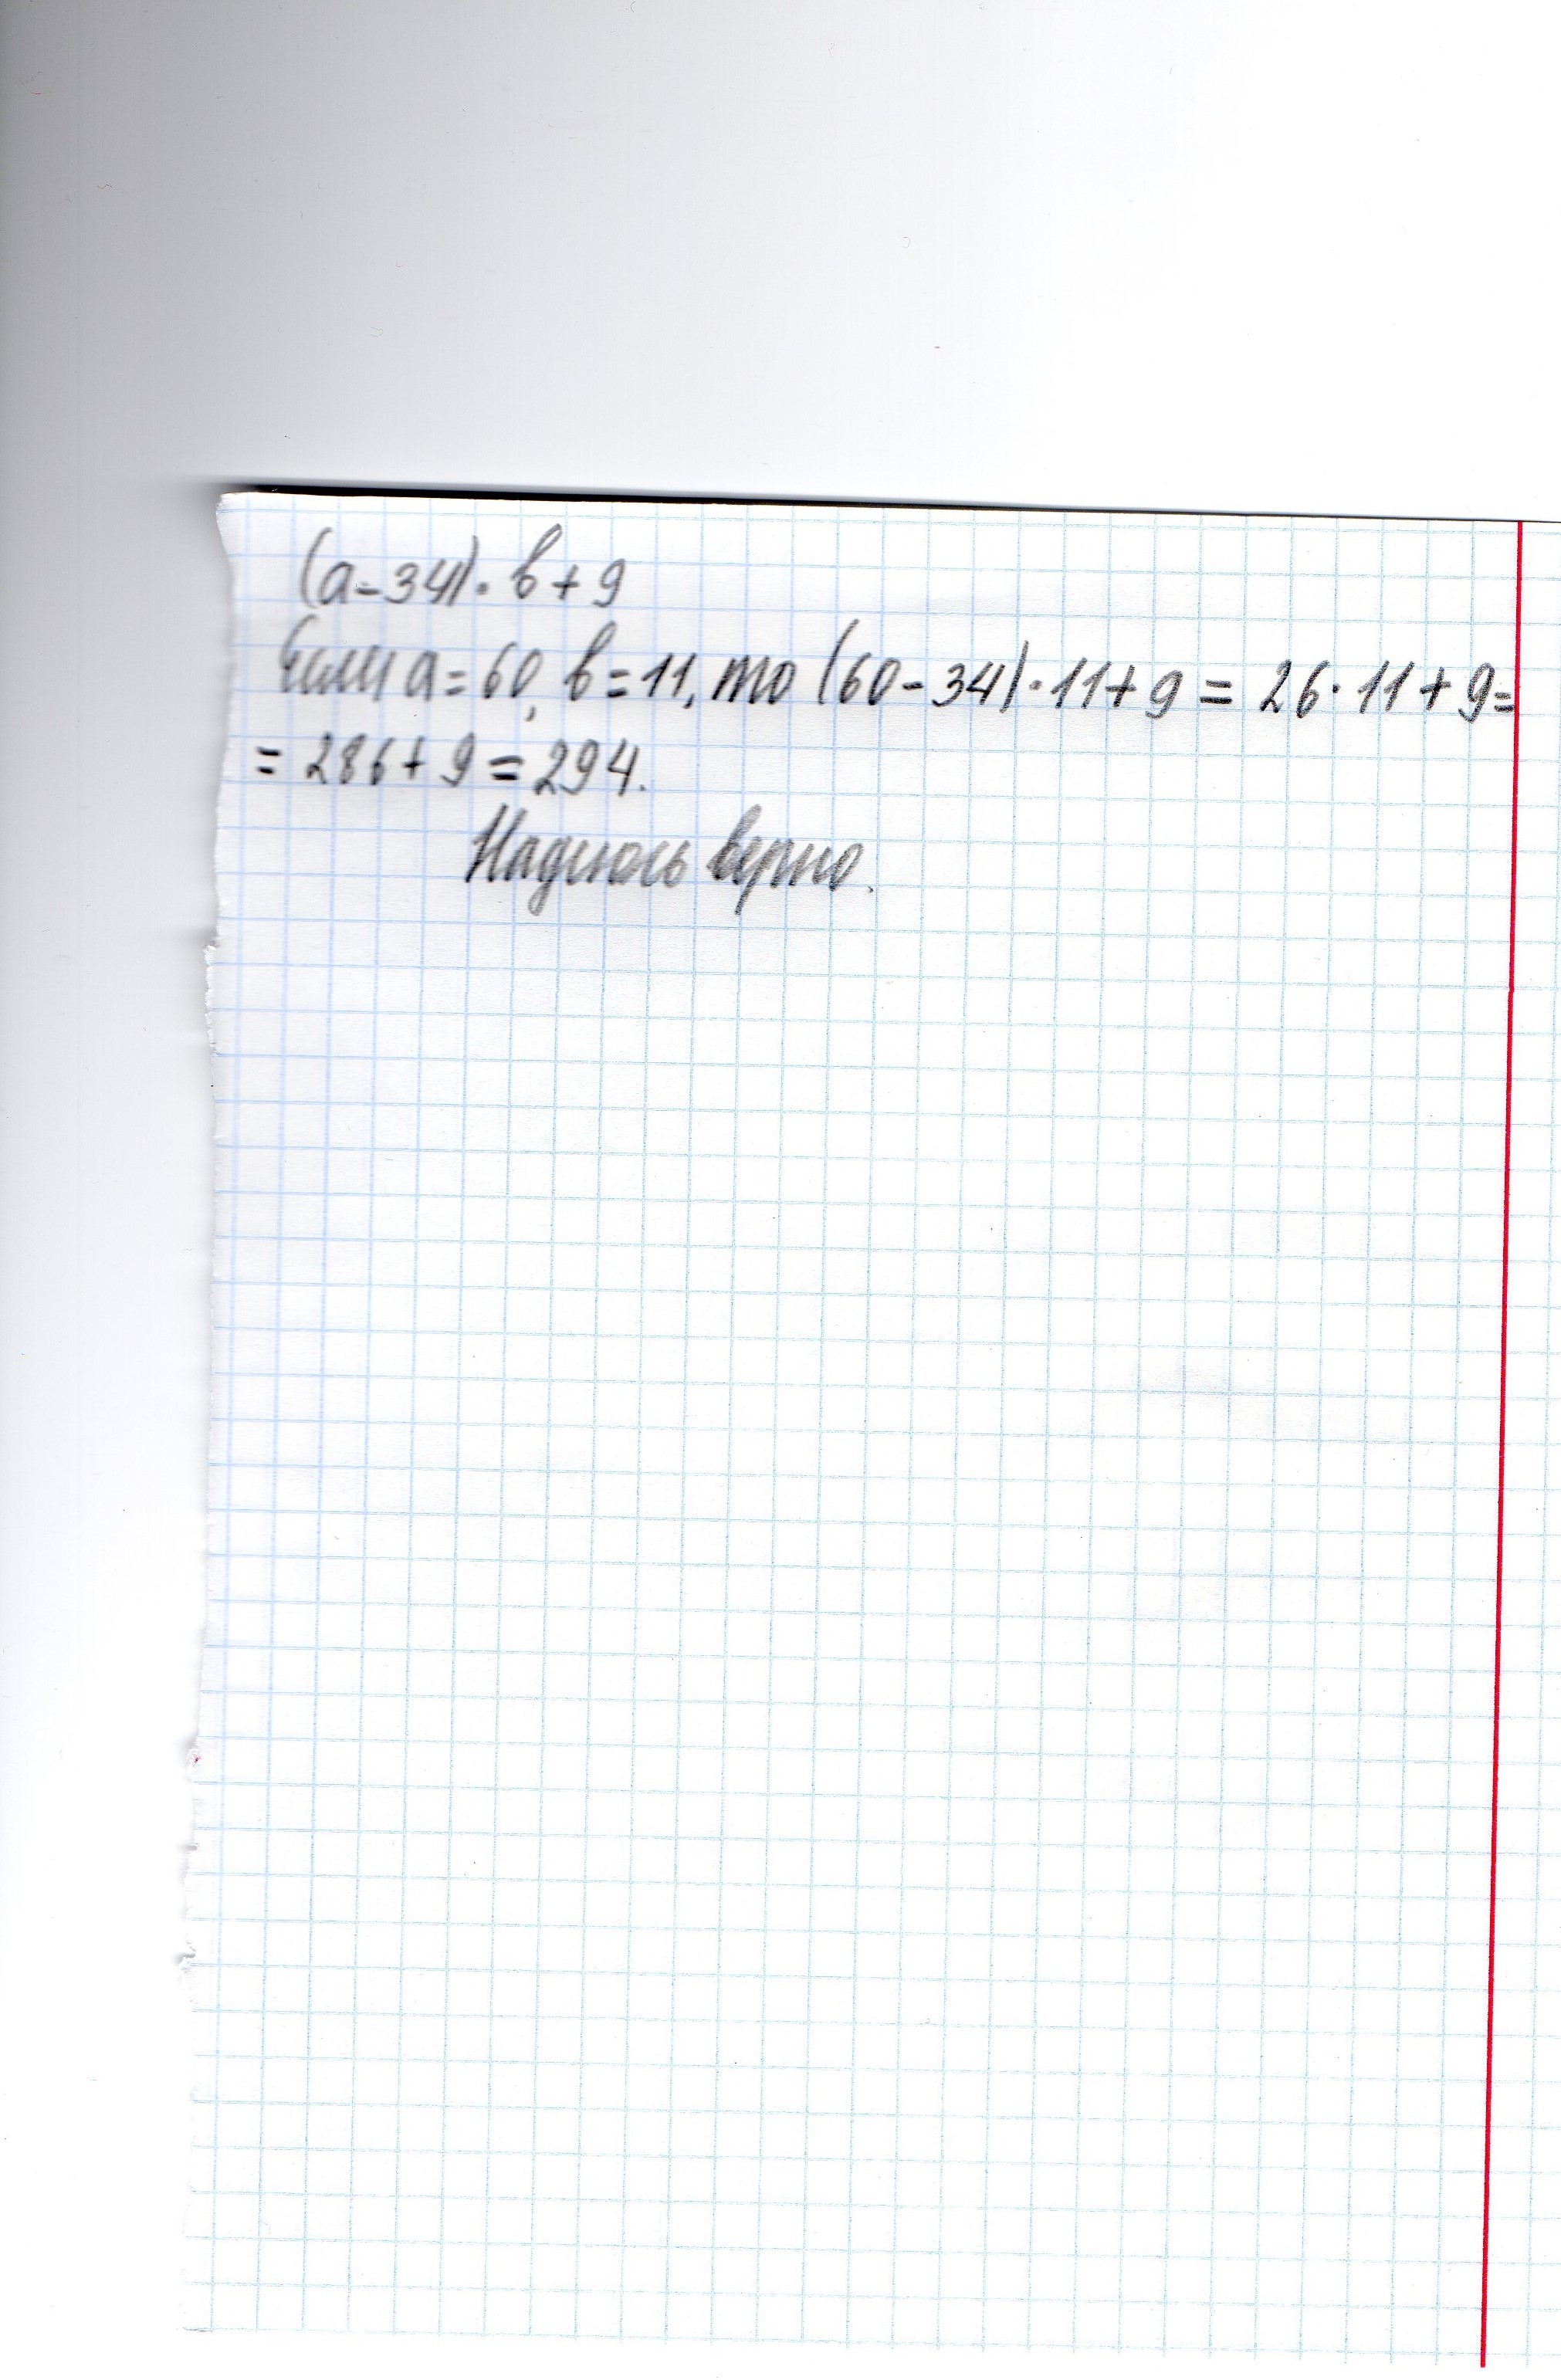 (а-34)·в+9
Если а=60, в=11, то (60-34)·11+9=26·11+9=
=286+9=294.
Надеюсь верно.